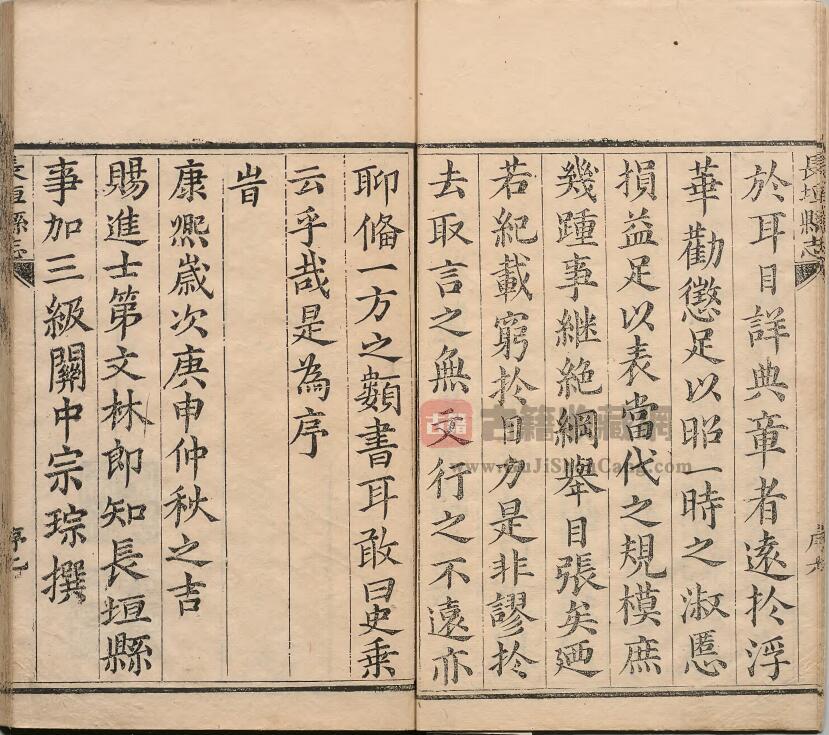 長垣縣志
於耳目詳典章者遠於浮
華勸懲足以昭一時之淑慝
損益足以表當代之規模庶
幾踵事继絶綱舉目張矣廼
若紀載窮於目力是非謬於
去取言之無文行之不遠亦
聊俻一方之纇書耳敢曰史乗
云乎哉是為序
旹
康熈歲次庚申仲秋之吉
賜進士第文林郎知長垣縣
事加三級關中宗琮撰
長垣縣志
序七
古籍收藏网
www.GuJiShouCang.com